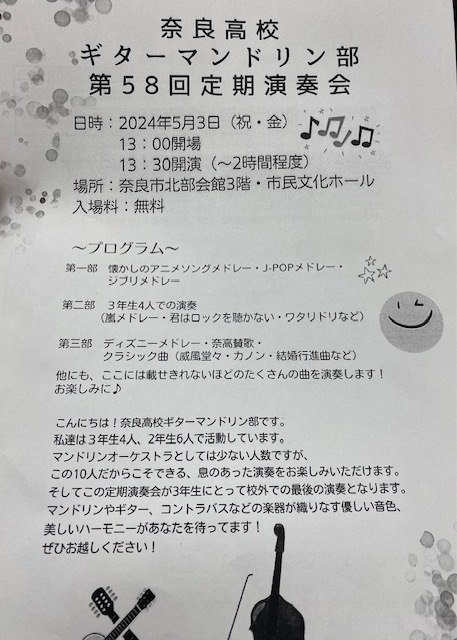 奈良高校
ギターマンドリン部
第58回定期演奏会
日時：2024年5月3日（祝・金）
13：00開場
13：30開演（～2時間程度）
場所：奈良市北部会館3階・市民文化ホール
入場料：無料
～プログラム～
第一部 懐かしのアニメソングメドレー・J-POPメドレー・
ジブリメドレー
第二部 3年生4人での演奏
（嵐メドレー・君はロックを聴かない・ワタリドリなど）
第三部 ディズニーメドレー・奈高賛歌・
クラシック曲（威風堂々・カノン・結婚行進曲など）
他にも、ここには載せきれないほどのたくさんの曲を演奏します！
お楽しみに♪
こんにちは！奈良高校ギターマンドリン部です。
私達は３年生4人、2年生6人で活動しています。
マンドリンオーケストラとしては少ない人数ですが、
この10人だからこそできる、息のあった演奏をお楽しみいただけます。
そしてこの定期演奏会が3年生にとって校外での最後の演奏となります。
マンドリンやギター、コントラバスなどの楽器が織りなす優しい音色、
美しいハーモニーがあなたを待ってます！
ぜひお越しください！